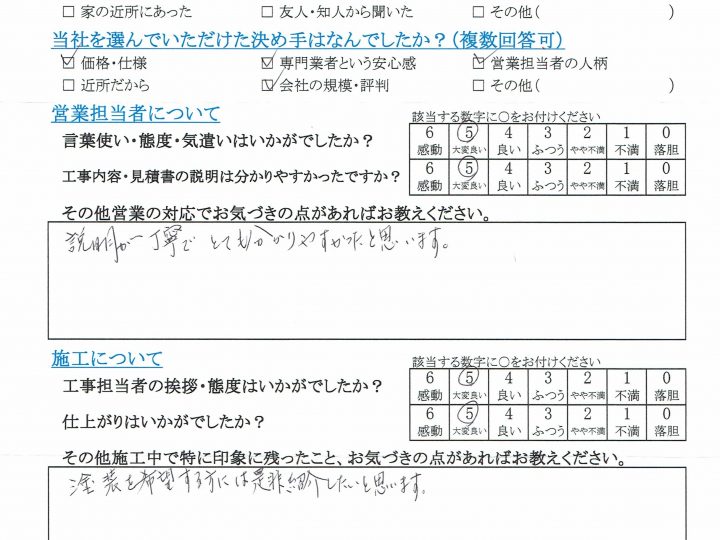 □ 家の近所にあった　□ 友人・知人から聞いた　□ その他(　　　)
当社を選んでいただけた決め手はなんでしたか？（複数回答可）
☑ 価格・仕様　☑ 専門業者という安心感　☑ 営業担当者の人柄
□ 近所だから　☑ 会社の規模・評判　□ その他(　　　)
営業担当者について　該当する数字に○をお付けください
言葉使い・態度・気遣いはいかがでしたか？　6 ⑤ 4 3 2 1 0
感動 大変良い 良い ふつう やや不満 不満 落胆
工事内容・見積書の説明は分かりやすかったですか？　6 ⑤ 4 3 2 1 0
感動 大変良い 良い ふつう やや不満 不満 落胆
その他営業の対応でお気づきの点があればお教えください。
説明が丁寧で とても分かりやすかったと思います。
施工について　該当する数字に○をお付けください
工事担当者の挨拶・態度はいかがでしたか？　6 ⑤ 4 3 2 1 0
感動 大変良い 良い ふつう やや不満 不満 落胆
仕上がりはいかがでしたか？　6 ⑤ 4 3 2 1 0
感動 大変良い 良い ふつう やや不満 不満 落胆
その他施工中で特に印象に残ったこと、お気づきの点があればお教えください。
塗装を希望する方には是非紹介したいと思います。